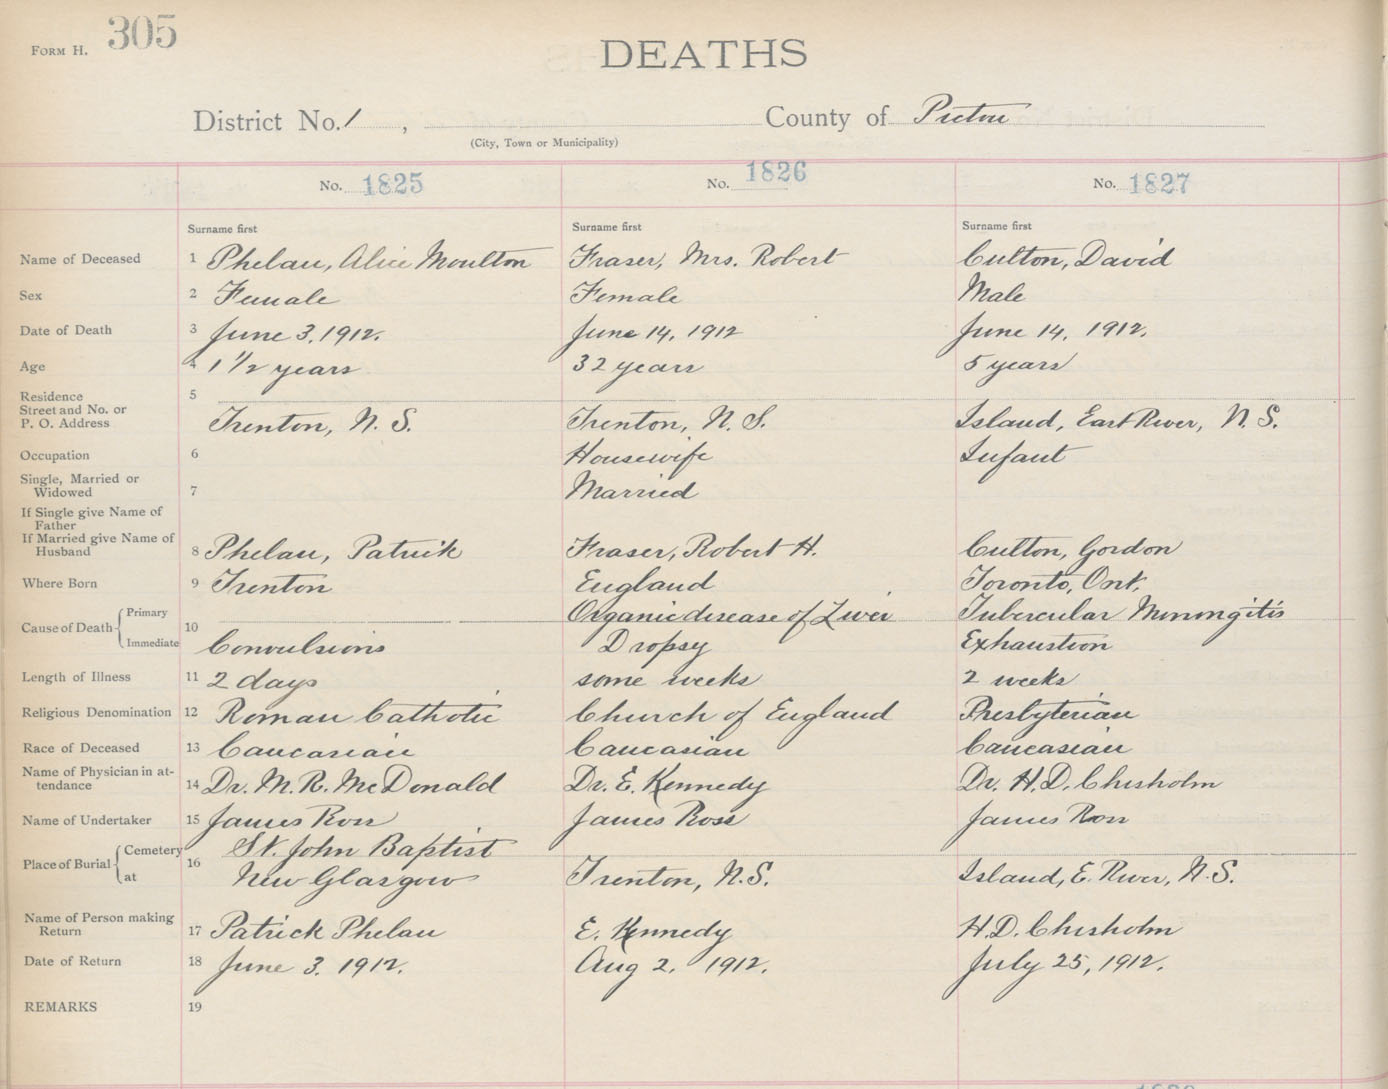 FORM H. 305
DEATHS
District No. 1, County of Pictou
(City, Town or Municipality)
No. 1825 No. 1826 No. 1827
Surname first Surname first Surname first
Name of Deceased 1 Phelan, Alice Moulton Fraser, Mrs. Robert Culton, David
Sex 2 Female Female Male
Date of Death 3 June 3, 1912. June 14, 1912 June 14, 1912.
Age 4 1 1/2 years 32 years 5 years
Residence 5
Street and No. or
P. O. Address Trenton, N. S. Trenton, N. S. Island, East River, N. S.
Occupation 6 Housewife Infant
Single, Married or
Widowed 7 Married
If Single give Name of
Father
If Married give Name of
Husband 8 Phelan, Patrick Fraser, Robert H. Culton, Gordon
Where Born 9 Trenton England Toronto, Ont.
Cause of Death Primary 10 Organic disease of Liver Tubercular Meningitis
Immediate Convulsions Dropsy Exhaustion
Length of Illness 11 2 days some weeks 2 weeks
Religious Denomination 12 Roman Catholic Church of England Presbyterian
Race of Deceased 13 Caucasian Caucasian Caucasian
Name of Physician in at-
tendance 14 Dr. M. R. McDonald Dr. E. Kennedy Dr. H. D. Chisholm
Name of Undertaker 15 James Ross James Ross James Ross
Place of Burial Cemetery 16 St. John Baptist
at New Glasgow Trenton, N.S. Island, E. River, N.S.
Name of Person making
Return 17 Patrick Phelan E. Kennedy H. D. Chisholm
Date of Return 18 June 3. 1912. Aug 2. 1912. July 25, 1912.
REMARKS 19